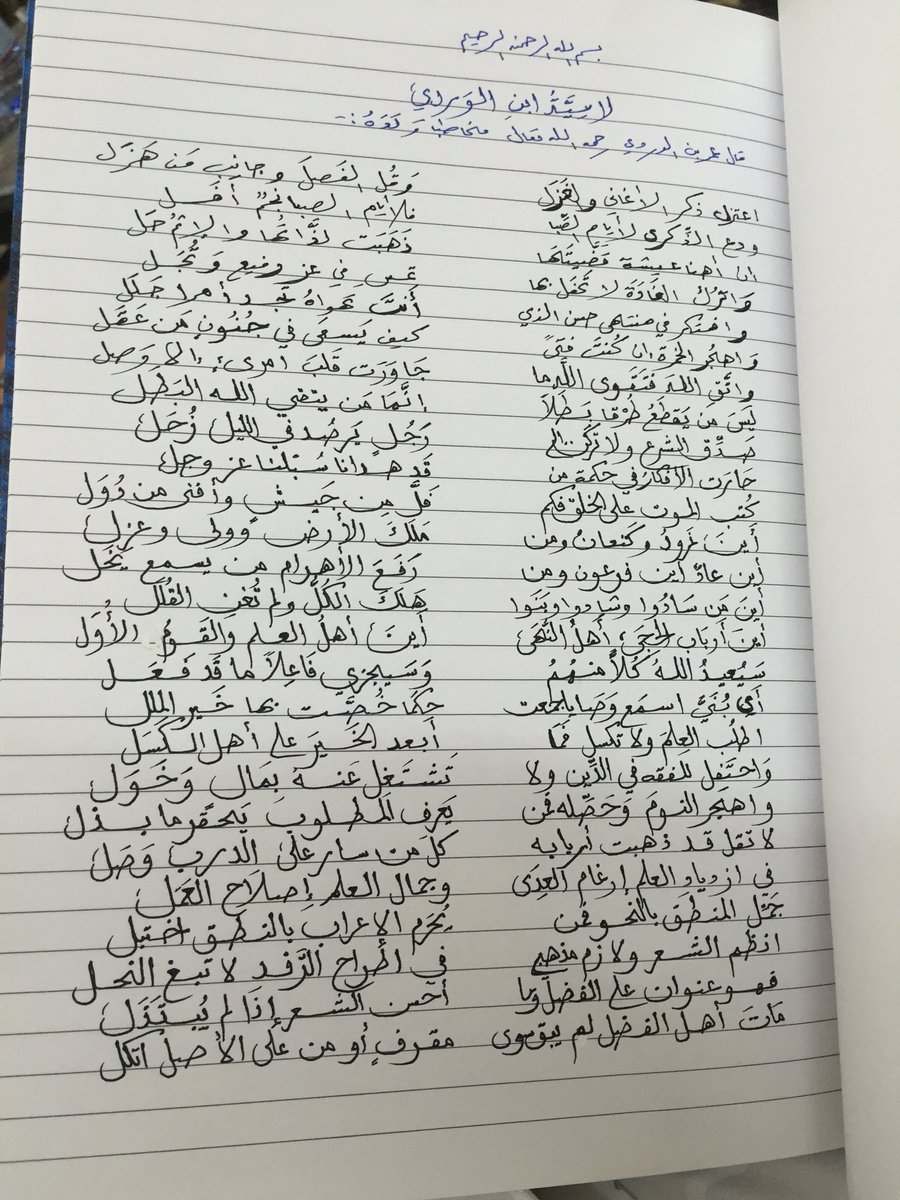 بسم الله الرحمن الرحيم
لاميَّةُ ابنِ الوردي
قال عمر بن الوردي رحمه الله تعالى مخاطبا ولده :-
اعتزل ذكر الأغاني والغزل وقُلِ الفَصلَ وجانِب مَن هَزَل
ودع الذِّكرى لأيامِ الصِّبا فلأيام الصبا نجمٌ أفَل
ان أهنا عيشة قضَّيتَها ذَهَبَت لذَّاتُها والإثمُ حَل
واترُك الغَادَةَ لا تحفل بها تمسِ في عز رفيع وتُجَل
وافتكر في منتهى حسن الذي أنتَ تهواهُ تجد أمرا جَلَل
واهجُر الخمرة إن كُنتَ فتىً كيف يَسعَى في جُنُونٍ مَن عَقَل
واتَّق اللهَ فتَقوى اللهِ ما جَاوَرَت قَلبَ امرىءٍ إلا وَصَل
لَيسَ مَن يَقطَعُ طُرقا بَطَلاَ إنَّمَا مَن يتقي الله البَطَل
صَدِّق الشرع ولا تركن إلى رَجُلٍ يَرصُد في الليل زُحَل
حارت الأفكارُ في حكمة من قد هدانا سُبلَنا عز وجل
كُتب الموت على الخلق فكم فَلَّ من جَيشٍ وأفنى من دُوَل
أينَ نمرُودُ وكنعانُ ومن مَلَكَ الأرضَ وولى وعزل
أين عادٌ أين فرعون ومن رَفَعَ الأهرام من يسمع يَخَل
أينَ مَن سَادُوا وشادوا وبَنَوا هَلَكَ الكُلُّ ولم تُغنِ القُلَل
أينَ أربَاب الحِجَى أهلُ النُّهَى أينَ أهلُ العلم والقَومُ الأُوَل
سَيُعيدُ اللهُ كُلاً منهُمُ وَسَيجزي فَاعِلاً ما قَد فَعَل
أي بُنَيَّ اسمَع وَصَايا جمعت حِكَمًا خُصَّت بها خَير الملل
اطلُب العلمَ ولا تكسل فما أبعد الخَيرَ على أهل الكَسَل
وَاحتَفِل للفقه في الدِّين ولا تَشتَغِل عَنهُ بِمَالٍ وَخَوَل
واهجر النومَ وَحَصِّله فمن يَعرف المطلوبَ يَحقر ما بَذَل
لا تقل قد ذهبت أربابه كل من سار على الدرب وَصَل
في ازدياد العلم إرغام العِدَى وجمال العلم إصلاح العَمَل
جَمِّل المنطق بالنحو فمن يُحرَم الإعراب بالنطق اختبل
انظم الشعر ولازم مذهبي في اطِّراح الرِّفد لا تبغ النحل
فهو عنوان على الفضل وما أحسن الشعر إذا لم يُبتَذَل
مَاتَ أهل الفضل لم يبق سوى مقرفٍ أو من على الأصل اتكل